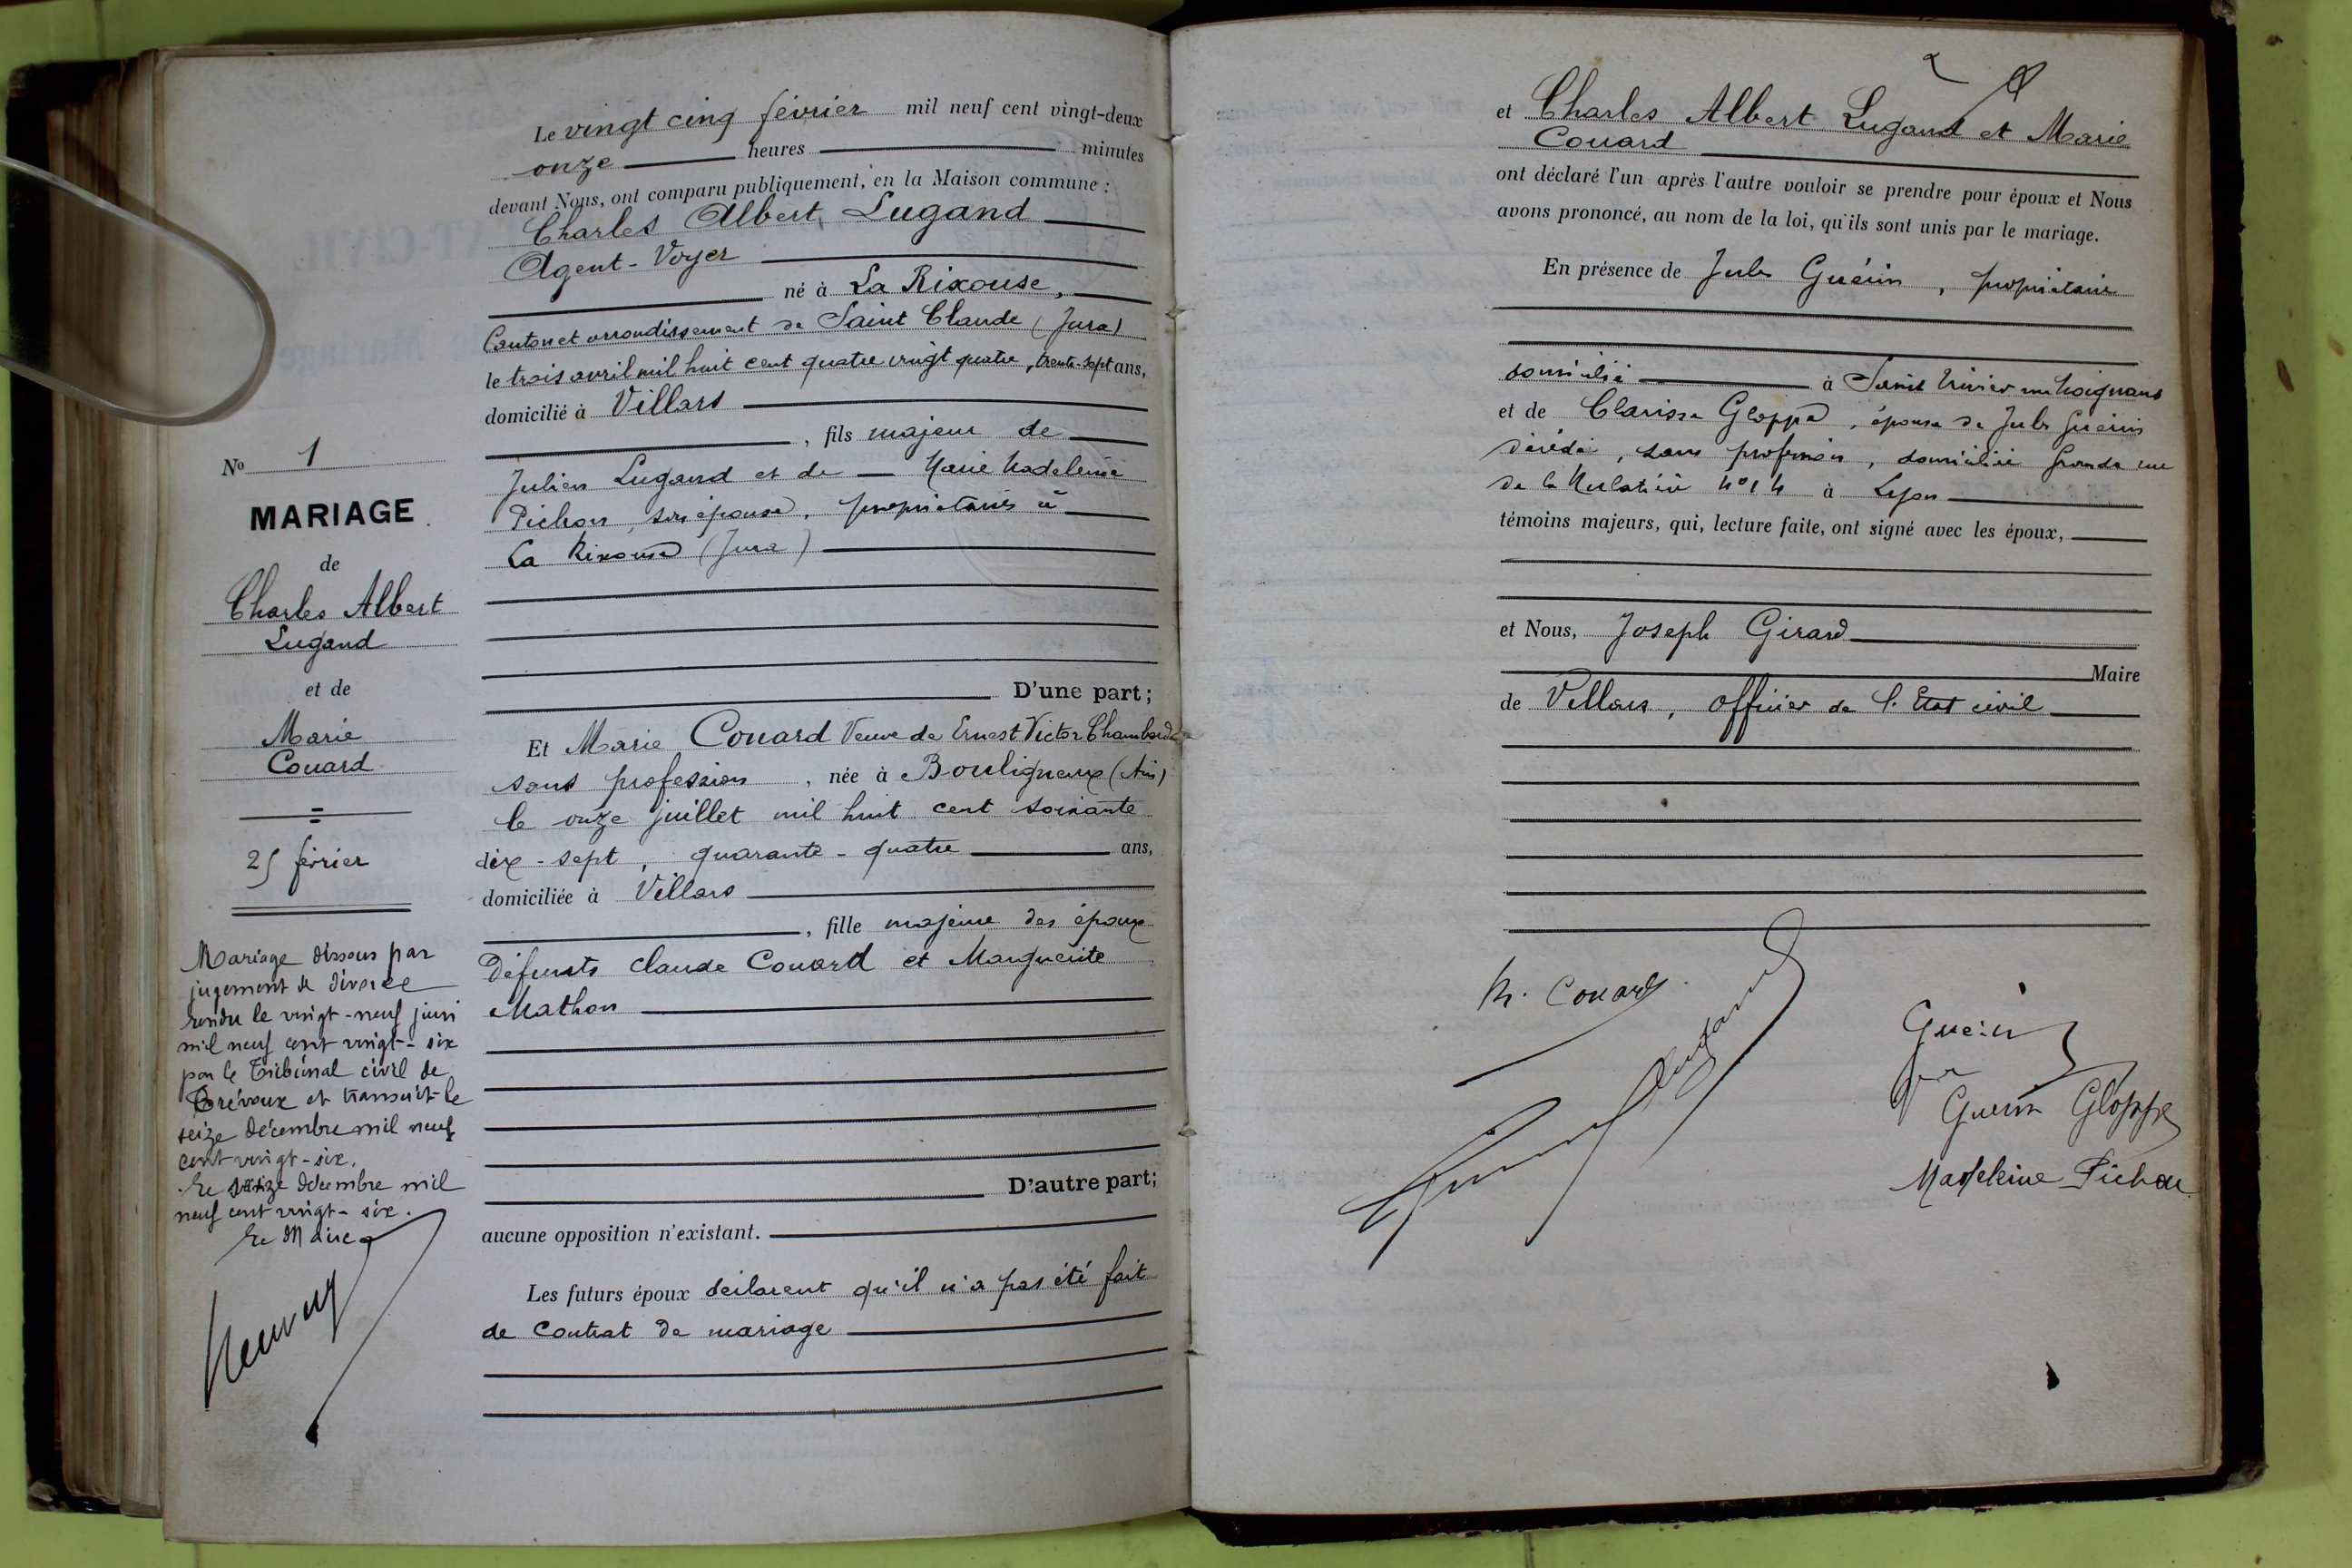 N° 1
MARIAGE
de
Charles Albert
Lugand
et de
Marie
Couard
25 février
Mariage dissous par
jugement de divorce
rendu le vingt-neuf juin
mil neuf cent vingt-six
par le Tribunal civil de
Trévoux et transcrit le
seize décembre mil neuf
cent vingt-six.
Le seize décembre mil
neuf cent vingt-six.
Le Maire
Le vingt cinq février mil neuf cent vingt-deux
onze heures minutes
devant Nous, ont comparu publiquement, en la Maison commune :
Charles Albert Lugand
Agent-Voyer
né à La Rixouse,
Canton et arrondissement de Saint Claude (Jura)
le trois avril mil huit cent quatre vingt quatre, trente-sept ans,
domicilié à Villars
, fils majeur de
Julien Lugand et de Marie Madeleine
Pichon, son épouse, propriétaires à
La Rixouse (Jura)
D'une part;
Et Marie Couard Veuve de Ernest Victor Chambard
sans profession, née à Bouligneux (Ain)
le onze juillet mil huit cent soixante
dix-sept, quarante-quatre ans,
domiciliée à Villars
, fille majeure des époux
défunts Claude Couard et Marguerite
Mathon
D'autre part;
aucune opposition n'existant.
Les futurs époux déclarent qu'il n'a pas été fait
de contrat de mariage
2
et Charles Albert Lugand et Marie
Couard
ont déclaré l'un après l'autre vouloir se prendre pour époux et Nous
avons prononcé, au nom de la loi, qu'ils sont unis par le mariage.
En présence de Jules Guérin, propriétaire
domicilié à Saint Trivier sur Moignans
et de Clarisse Gloppe, épouse de Jules Guérin
, sans profession, domiciliée Grande rue
de la N° 14 à Lyon
témoins majeurs, qui, lecture faite, ont signé avec les époux,
et Nous, Joseph Girard
Maire
de Villars, officier de l'Etat civil
M. Couard
Lugand
Guérin
Guérin Gloppe
Madeleine Pichon